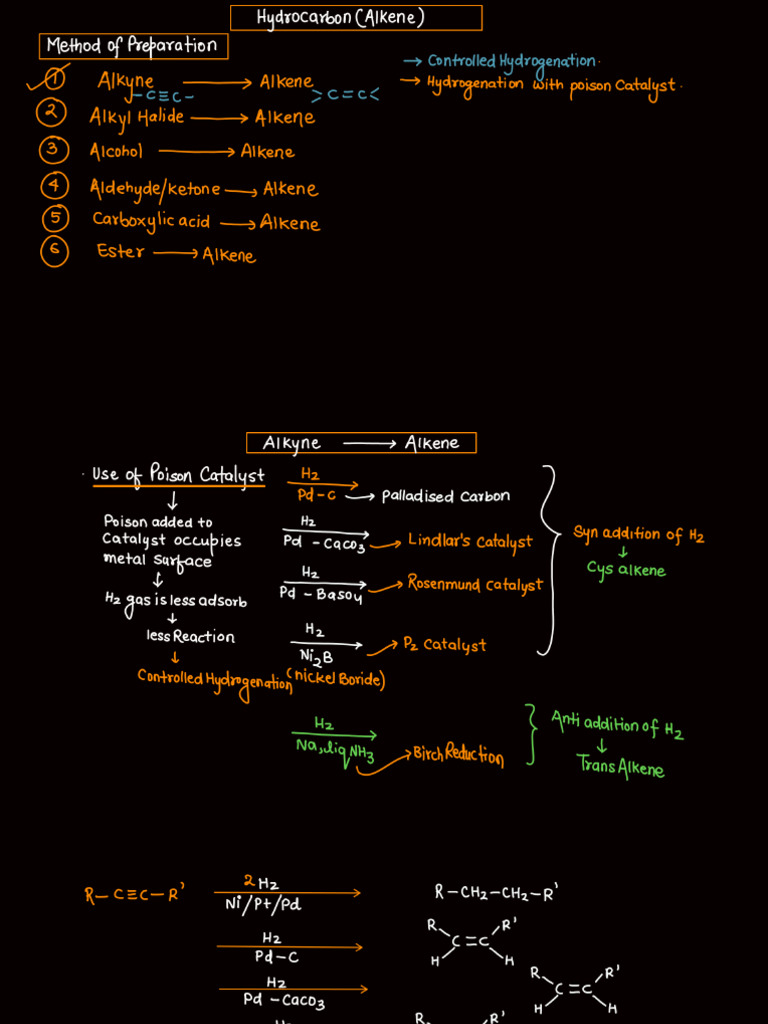 Hydrocarbon (Alkene)
Method of Preparation
① Alkyne ⟶ Alkene
–C≡C–
>C=C<
→ Controlled Hydrogenation.
→ Hydrogenation with poison Catalyst.
② Alkyl Halide ⟶ Alkene
③ Alcohol ⟶ Alkene
④ Aldehyde/ketone ⟶ Alkene
⑤ Carboxylic acid ⟶ Alkene
⑥ Ester ⟶ Alkene
Alkyne ⟶ Alkene
· Use of Poison Catalyst
↓
Poison added to
Catalyst occupies
metal surface
↓
H2 gas is less adsorb
↓
less Reaction
↓
Controlled Hydrogenation
H2
Pd-C → Palladised Carbon
H2
Pd - CaCO3 → Lindlar's Catalyst
H2
Pd - BaSO4 → Rosenmund Catalyst
H2
Ni2B → P2 Catalyst
(nickel Boride)
Syn addition of H2
↓
Cys alkene
H2
Na, liq NH3 → Birch Reduction
Anti addition of H2
↓
Trans Alkene
R–C≡C–R'
2H2
Ni/Pt/Pd
R–CH2–CH2–R'
H2
Pd-C
R R'
C=C
H H
H2
Pd - CaCO3
R R'
C=C
H H
H2
R R'